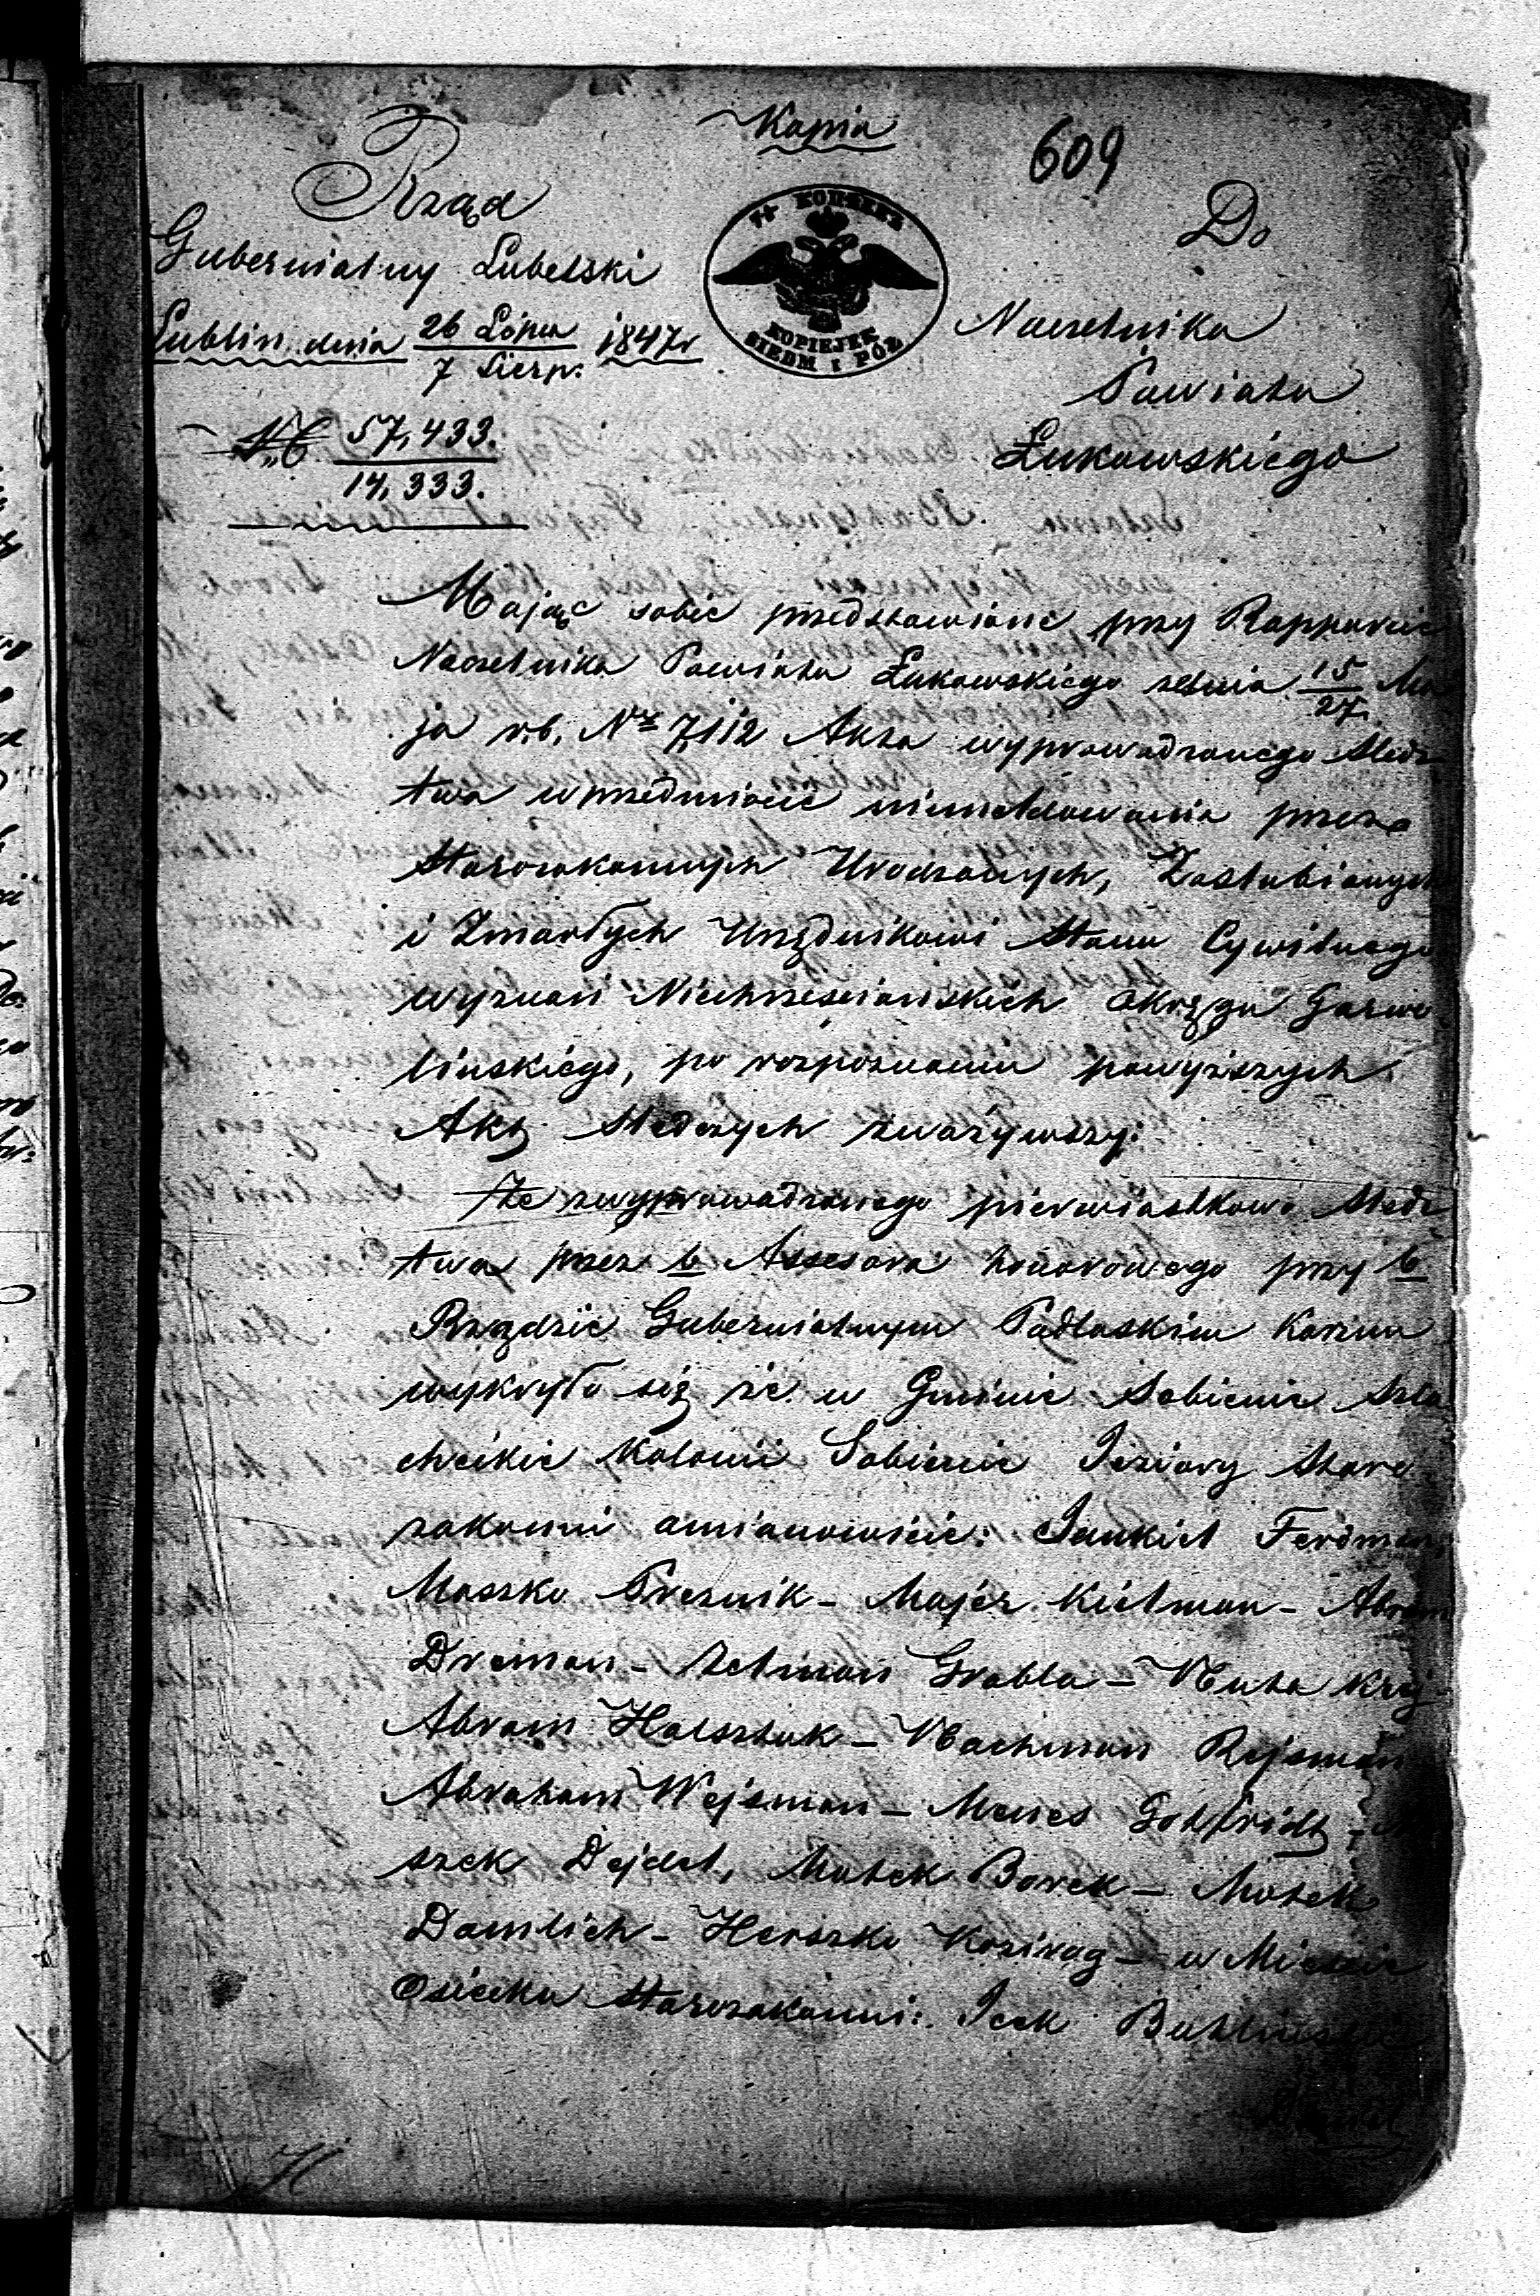 Kopia
609
Rząd
Gubernialny Lubelski
Lublin dnia 26 Lipca / 7 Sierp: 1847 r
7½ КОПѢЕКЪ
KOPIEJEK
SIEDM I PÓŁ
Do
Naczelnika
Powiatu
Łukowskiego
57,433.
14,333.
Mając sobie przedstawione przy Rapporcie
Naczelnika Powiatu Łukowskiego zdnia 15/27 Ma
ja r.b. Nr 7112 Akta wyprowadzonego śledz
twa wprzedmiocie niemeldowania przez
Starozakonnych Urodzonych, Zaślubionych
i Zmarłych Urzędnikowi Stanu Cywilnego
wyznań Niechrześciańskich Okręgu Garwo
lińskiego, po rozpoznaniu powyższych
Akt śledczych zważywszy:
że zwyprowadzonego pierwiastkowo śledz
twa przez b. Assesora honorowego przy b.
Rządzie Gubernialnym Podlaskim
wykryło się że w Gminie Sobienie Szla
checkie Kolonii Sobienie Jeziory Staro
zakonni amianowicie: Jankiel Ferdman,
Moszko Presnik - Majer Kielman - Abram
Dreman - Zelman Grabla - Nuta Krej
Abram Halsztuk - Nachman Rejsman
Abraham Wejsman - Menes Gotfridt -
szek Dejdel, Motek Borek - Motek
Damlich - Herszko - w Mieście
Osiecku Starozakonni: Icek